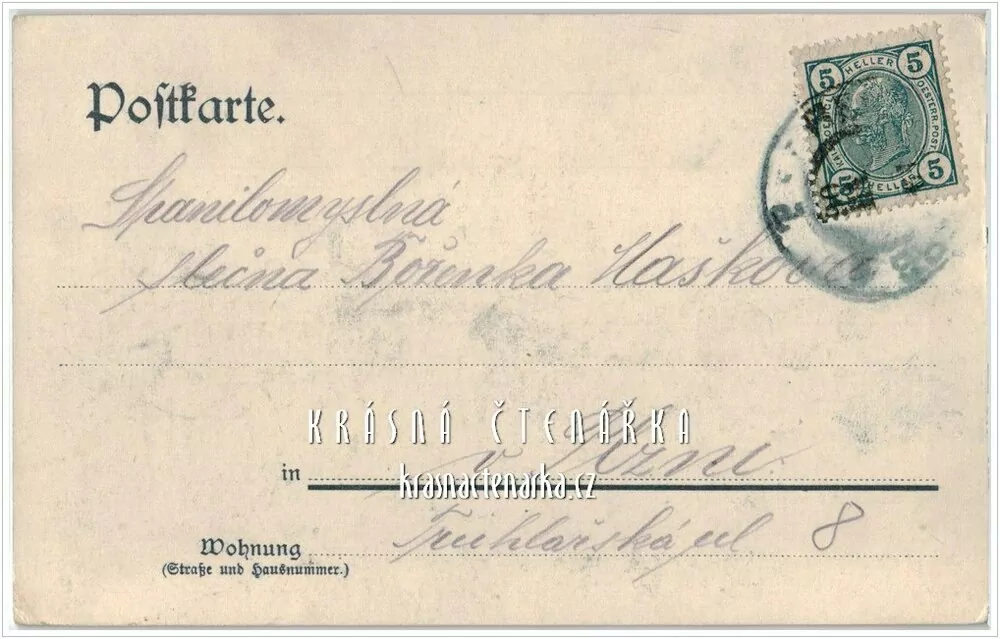 Postkarte.
5 HELLER 5
OESTERR. POST.
5 HELLER 5
Spanilomyslná
slečna Boženka Hašková
KRÁSNÁ ČTENÁŘKA
v Plzni.
in
krasnactenarka.cz
Truhlářská ul 8
Wohnung
(Straße und Hausnummer.)